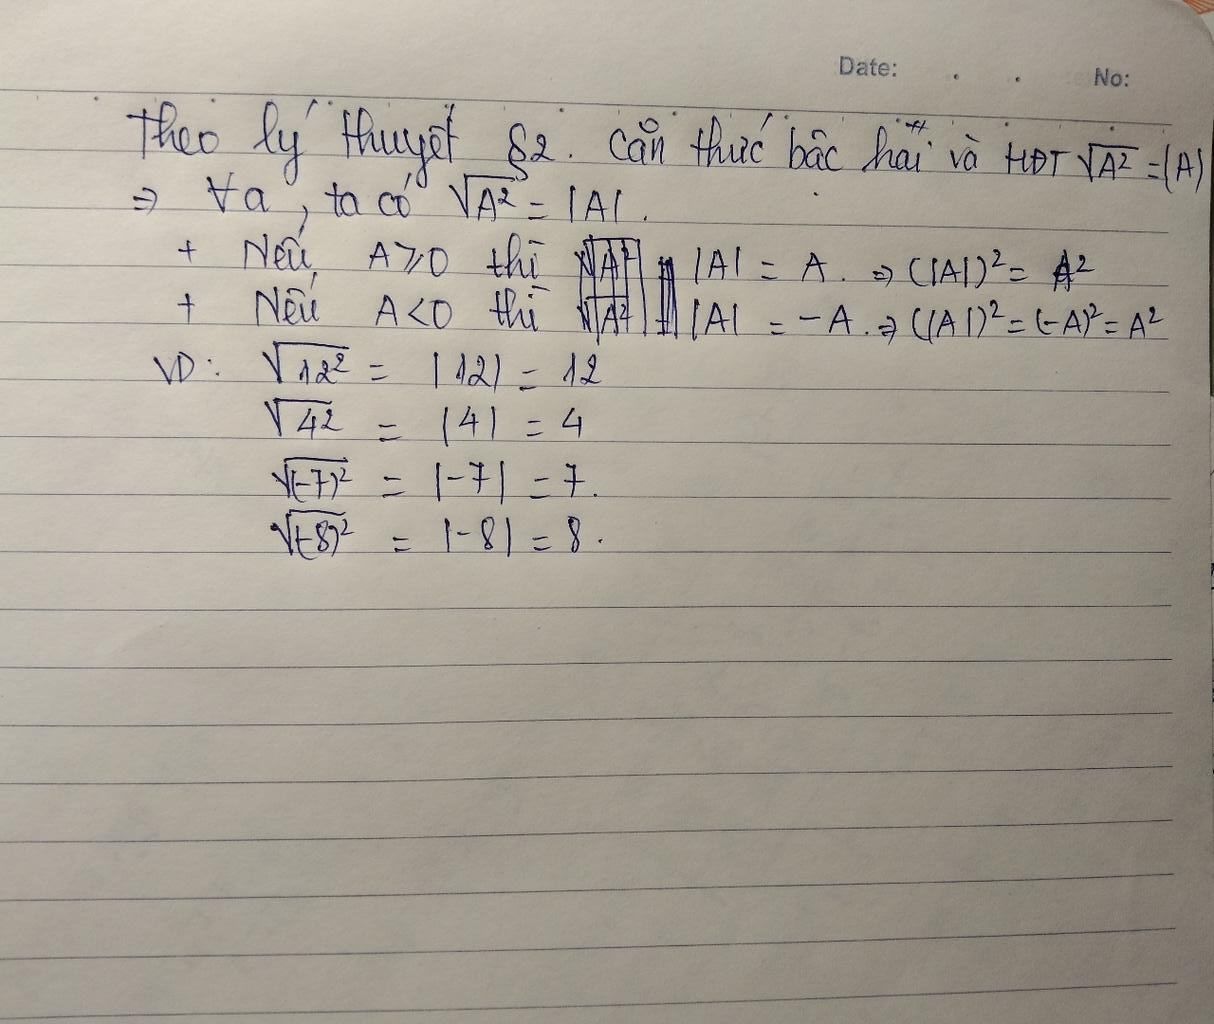 Date: . . No:
Theo lý thuyết §2. Căn thức bậc hai và HĐT √A² = |A|
⇒ ∀a, ta có √A² = |A|.
+ Nếu A ⩾ 0 thì |A| = A. ⇒ (|A|)² = A²
+ Nếu A < 0 thì |A| = -A. ⇒ (|A|)² = (-A)² = A²
VD: √12² = |12| = 12
√4² = |4| = 4
√(-7)² = |-7| = 7.
√(-8)² = |-8| = 8.